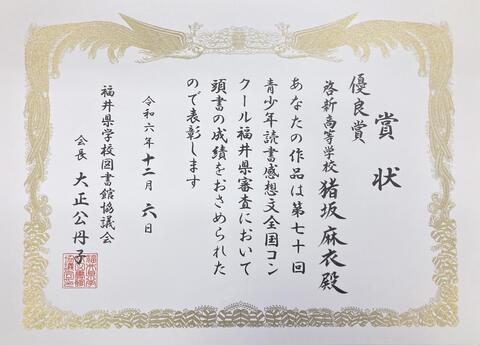 賞状
優良賞
啓新高等学校 猪坂麻衣殿
あなたの作品は第七十回
青少年読書感想文全国コン
クール福井県審査において
頭書の成績をおさめられた
ので表彰します
令和六年十二月六日
福井県学校図書館協議会
会長 大正公丹子